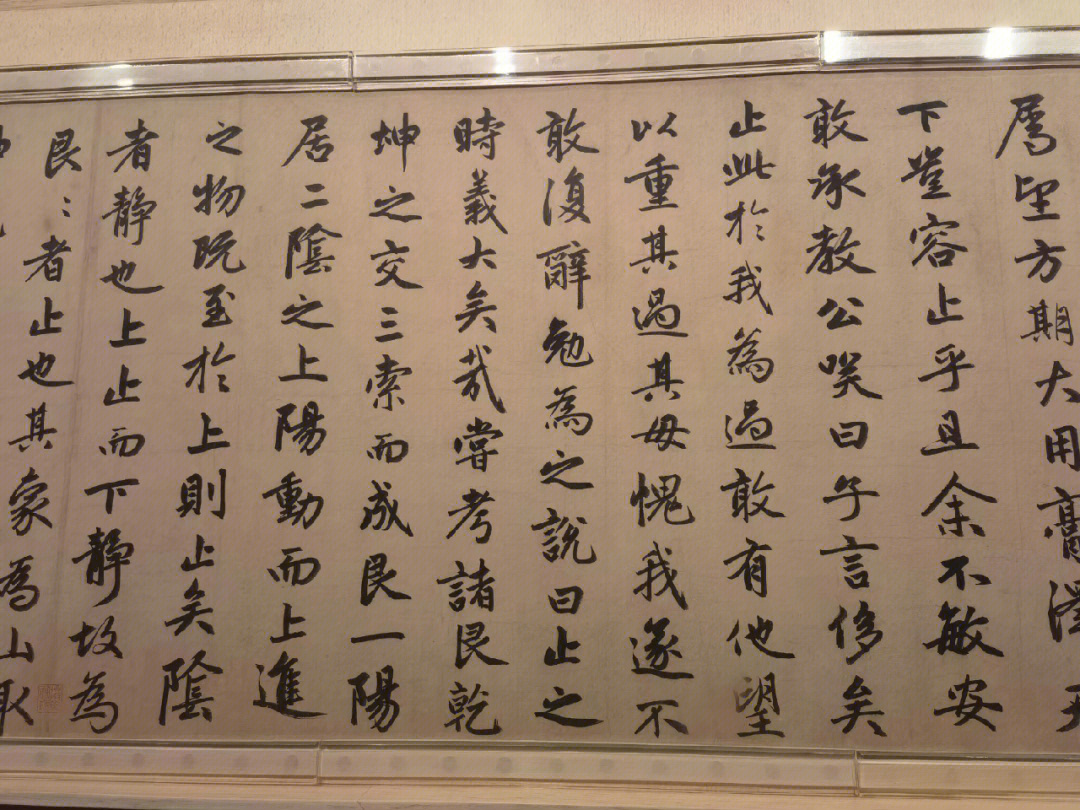 厲望方期大用膏澤天
下豈容止乎且余不敏安
敢承教公笑曰子言侈矣
止此於我為過敢有他望
以重其過其毋愧我遂不
敢復辭勉為之說曰止之
時義大矣哉嘗考諸艮乾
坤之交三索而成艮一陽
居二陰之上陽動而上進
之物既至於上則止矣陰
者靜也上止而下靜故為
艮〻者止也其象為山取
坤